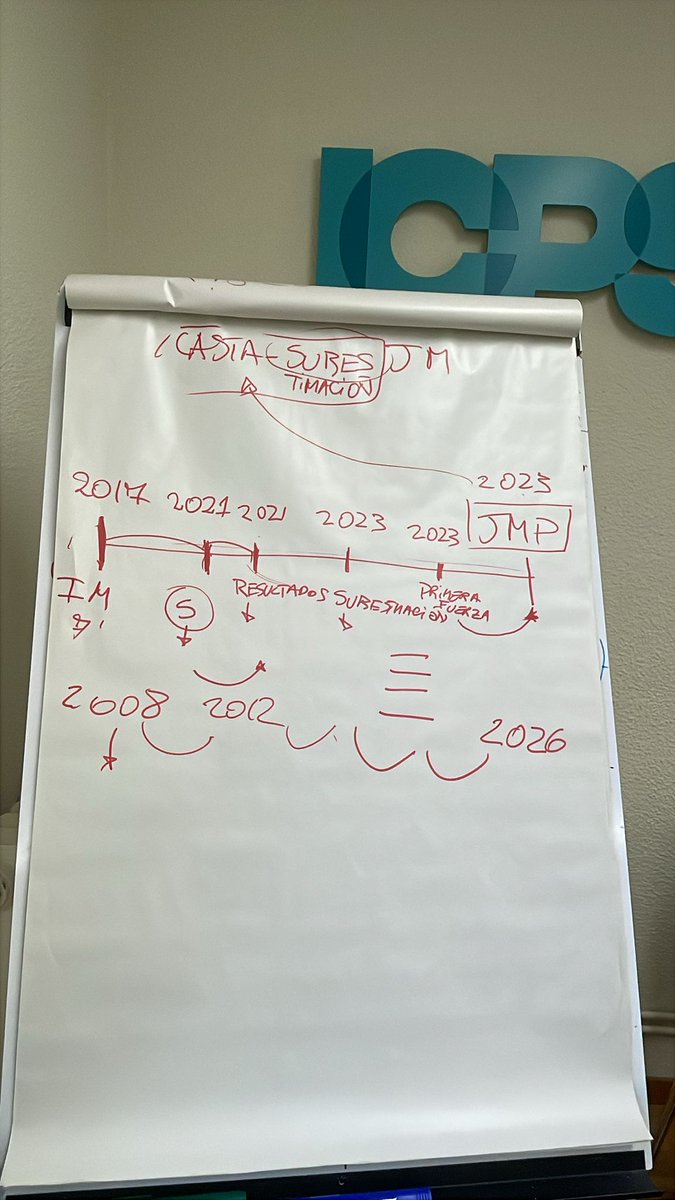 ICPS
CASTA SUBES JM
TIMACIÓN
2023
2017 2021 2021 2023 2023 JMP
IM S RESULTADOS SUBESTIMACIÓN PRIMERA
FUERZA
2008 2012 2026